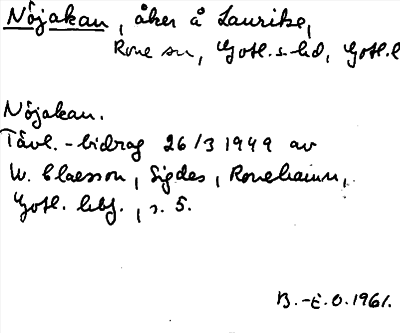 Nöjakan, åker å Laurikse,
Rone sn, Gotl. s. hd, Gotl. l
Nöjakan.
Tävl.-bidrag 26/3 1949 av
W. Claesson, Sigdes, Ronehamn,
Gotl. hbf., s. 5.
B.-E.O. 1961.